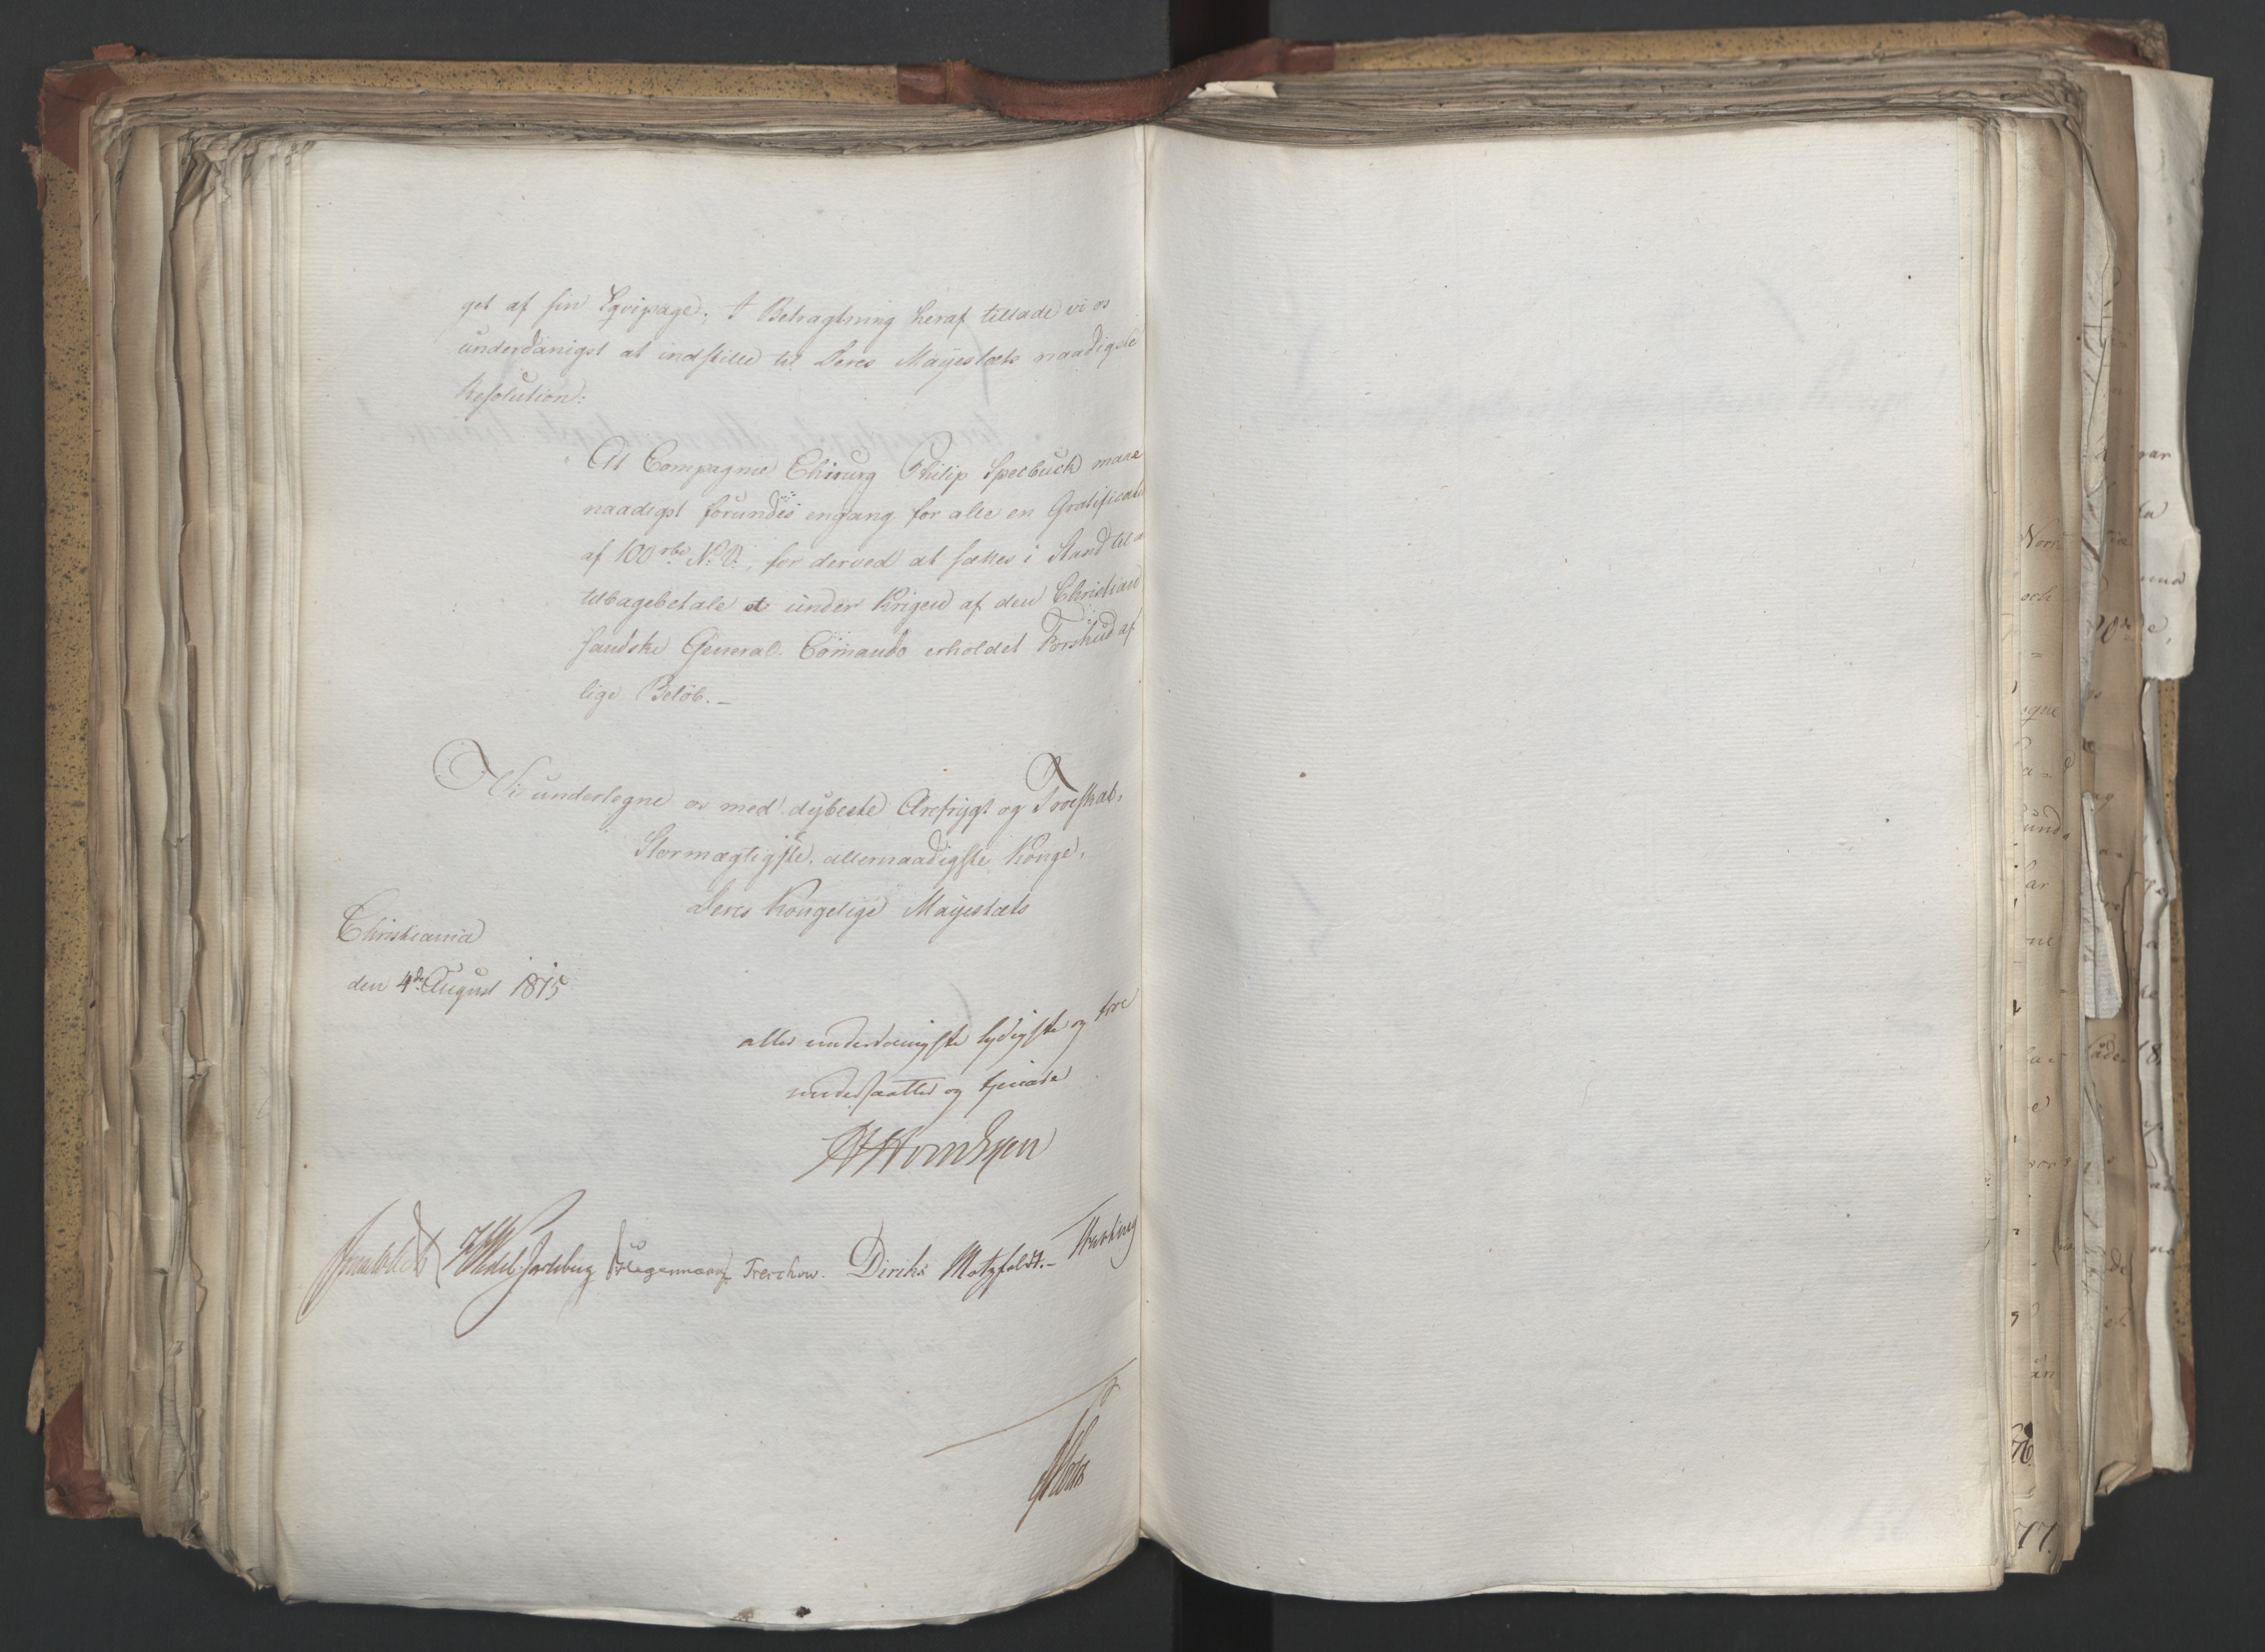 get af sin Eqvipage; I Betragtning heraf tillade vi os
underdanigst at indstille til Deres Mayestæts naadigste
Resolution:
At Compagnie Chirurg Philip Specbuch maae
naadigst forundes engang for alle en Gratificati
af 100 rbd. N.V., for derved at sættes i Stand til a
tilbagebetale et under Krigen af den Christian
sandske General Comando erholdet Forskud af
lige Beløb. –
Vi undertegne os med dybeste Ærefrygt og Troeskab,
Stormægtigste, allernaadigste Konge,
Deres Kongelige Mayestæts
Christiania
den 4de August 1815
aller underdanigste lydigste og troe
undersaatter og tjenere
Wedel-Jarlsberg Hegermann Treschow. Diriks Motzfeldt. –
Norr
och
gne
und
ar
ne
76
77.